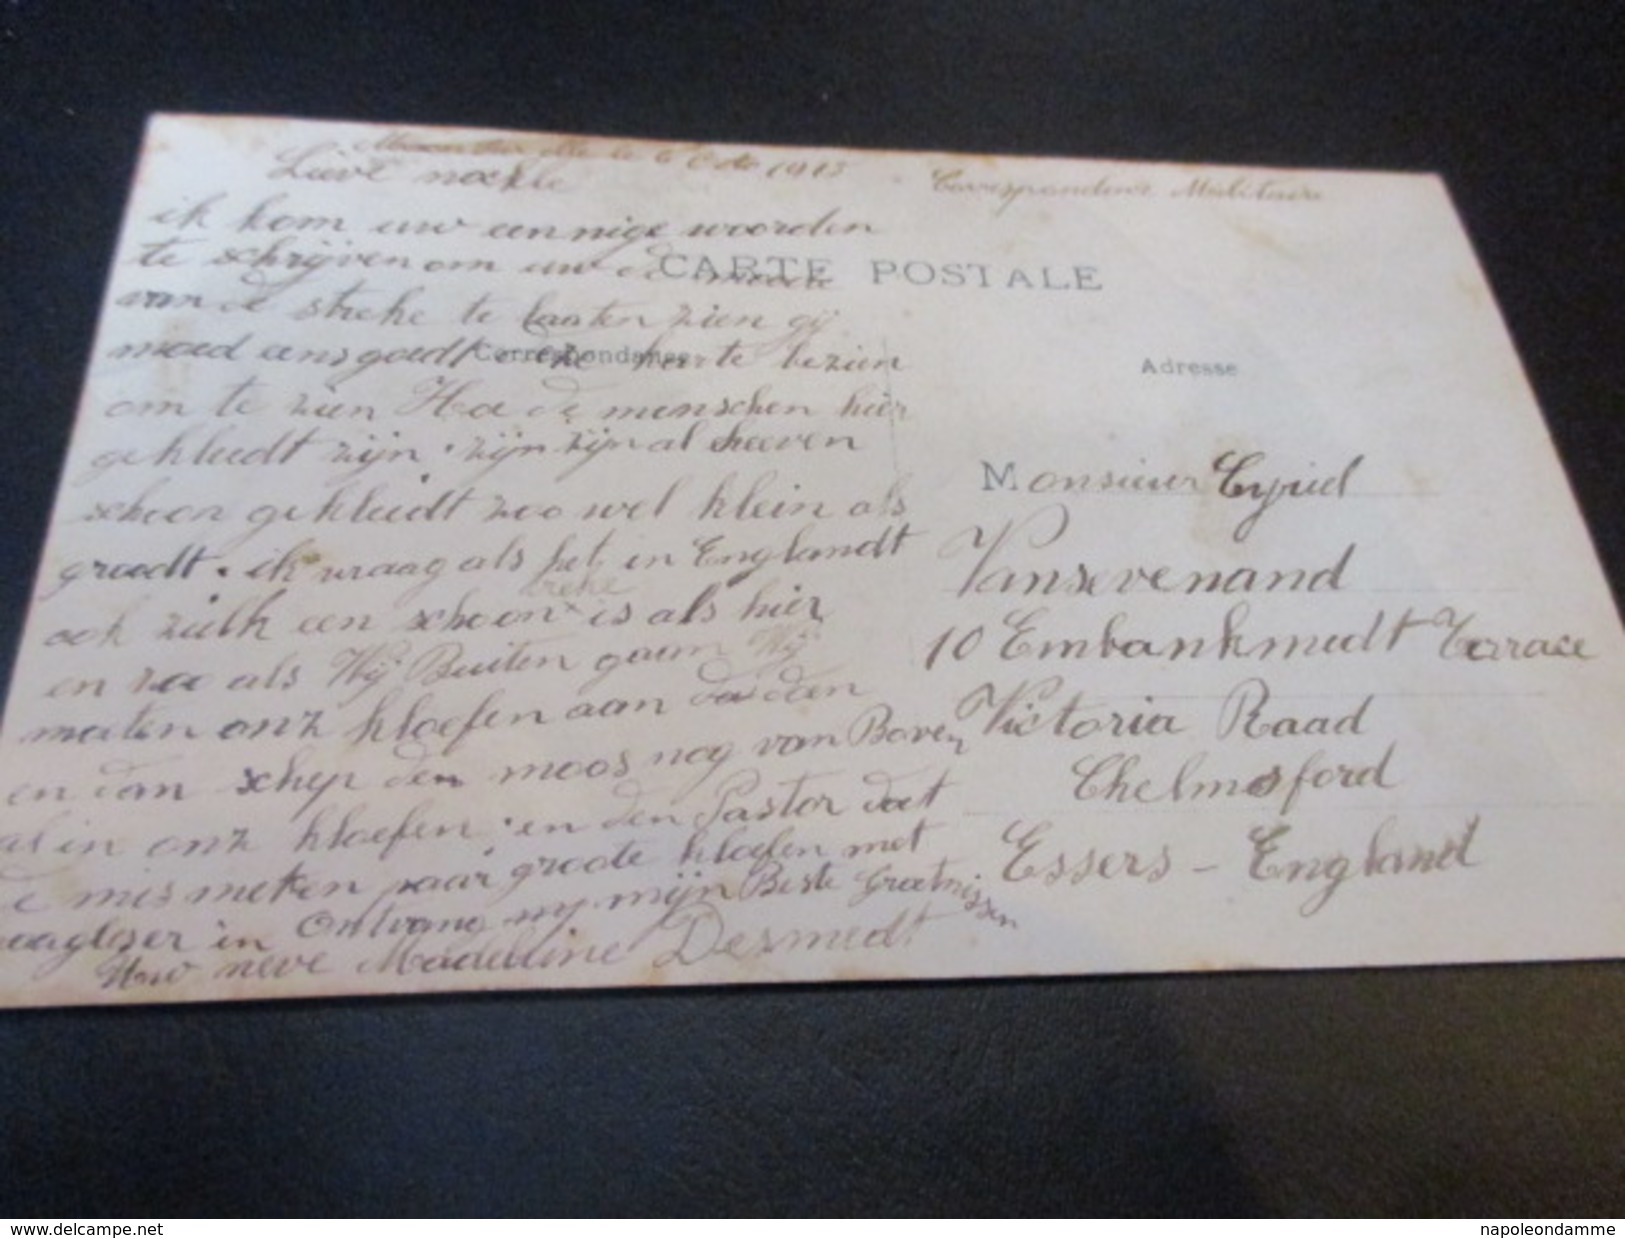 le 6 Octo 1915
Correspondence Militaire
Lieve nockle
ik kom uw eennige woorden
te schrijven om uw de mode
van de streke te laaten zien gij
moed eens goedt de karte bezien
om te zien Hoe de menschen hier
gekleedt zijn . zijn zijn al heeven
schoon gekleedt zoo wel klein als
groodt . ik vraag als het in Englandt
ook zulk een schoon streke is als hier
en zoo als Wij Buiten gaan Wij
moeten onz kloefen aan doen
en dan schep den moos nog van Boven
al in onz kloefen . en den Pastor doet
de mis met een paar groote kloefen met
in Ontvang nog mijn Beste Groetnissen
Uw neve Madeleine Desmedt
CARTE POSTALE
Correspondance
Adresse
Monsieur Cyriel
Vansevenand
10 Embankmedt Terrace
Victoria Raad
Chelmsford
Essers - England
www.delcampe.net
napoleondamme